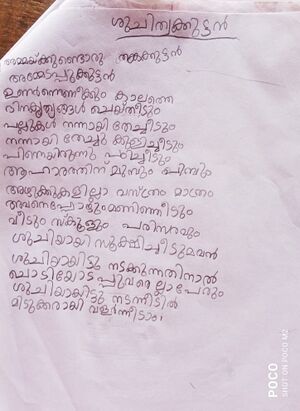 ശുചിത്വക്കുട്ടൻ
അമ്മയ്ക്കുണ്ടൊരു തങ്കക്കുട്ടൻ
അമ്മേടപ്പുക്കുട്ടൻ
ഉണർന്നെണീക്കും കാലത്തെ
ദിനകൃത്യങ്ങൾ ചെയ്തീടും
പല്ലുകൾ നന്നായി തേച്ചീടും
നന്നായി തേച്ചു കുളിച്ചീടും
പിന്നെയിരുന്നു പഠിച്ചീടും
ആഹാരത്തിന് മുമ്പും പിമ്പും
അഴുക്കുകളില്ലാ വസ്ത്രം മാത്രം
അവനെപ്പോഴുമണിഞ്ഞീടും
വീടും സ്കൂളും പരിസരവും
ശുചിയായി സൂക്ഷിച്ചീടുമവൻ
ശുചിയായിട്ടു നടക്കുന്നതിനാൽ
ചൊടിയോടപ്പുവരെല്ലാപേരും
ശുചിയായിട്ടു നടന്നീടിൽ
മിടുക്കരായി വളർന്നീടാം!
POCO
SHOT ON POCO M2